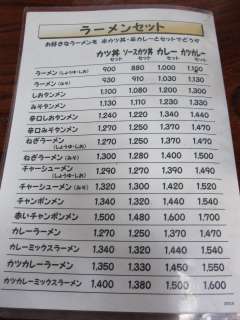 ラーメンセット
お好きなラーメンを 半カツ丼・半カレーとセットでどうぞ
カツ丼セット ソースカツ丼セット カレーセット カツカレーセット
ラーメン(しょうゆ・しお) 900 880 1,000 1,100
ラーメン(みそ) 930 910 1,030 1,130
しおヤンメン 1,110 1,090 1,210 1,310
みそヤンメン 1,130 1,110 1,230 1,330
辛口しおヤンメン 1,270 1,250 1,370 1,470
辛口みそヤンメン 1,290 1,270 1,390 1,490
ねぎラーメン(しょうゆ・しお) 1,270 1,250 1,370 1,470
ねぎラーメン(みそ) 1,300 1,280 1,400 1,500
チャーシューメン(しょうゆ・しお) 1,290 1,270 1,390 1,490
チャーシューメン(みそ) 1,320 1,300 1,420 1,520
チャンポンメン 1,340 1,320 1,440 1,540
赤いチャンポンメン 1,500 1,480 1,600 1,700
カレーラーメン 1,270 1,250 1,370 1,470
カレーミックスラーメン 1,340 1,320 1,440 1,540
カツカレーラーメン 1,350 1,330 1,450 1,550
カツカレーミックスラーメン 1,400 1,380 1,500 1,600